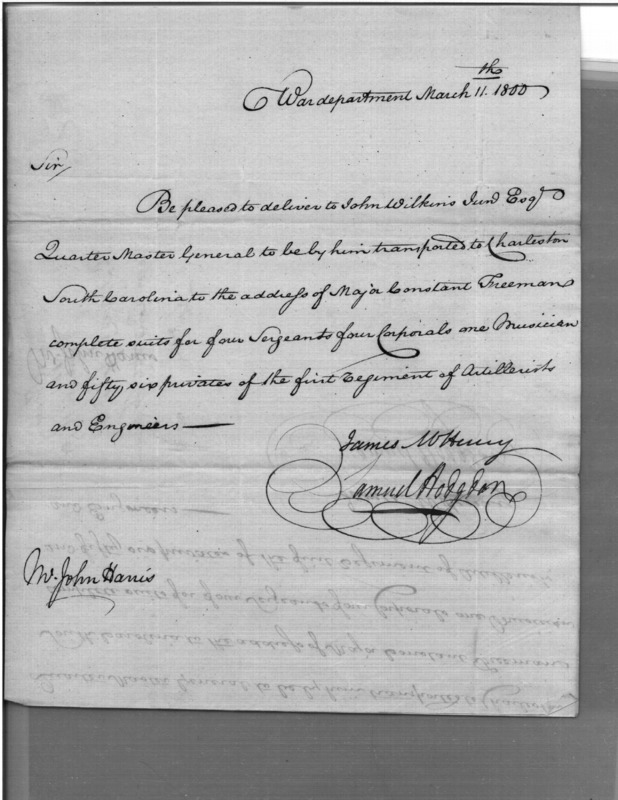 War department March 11.th 1800
Sir,
Be pleased to deliver to John Wilkins Junr Esqr
Quarter Master General to be by him transported to Charleston
South Carolina to the address of Major Constant Freeman
complete suits for four Sergeants four Corporals one Musician
and fifty six privates of the first Regiment of Artillerists
and Engineers —
James McHenry
Samuel Hodgdon
Mr. John Harris